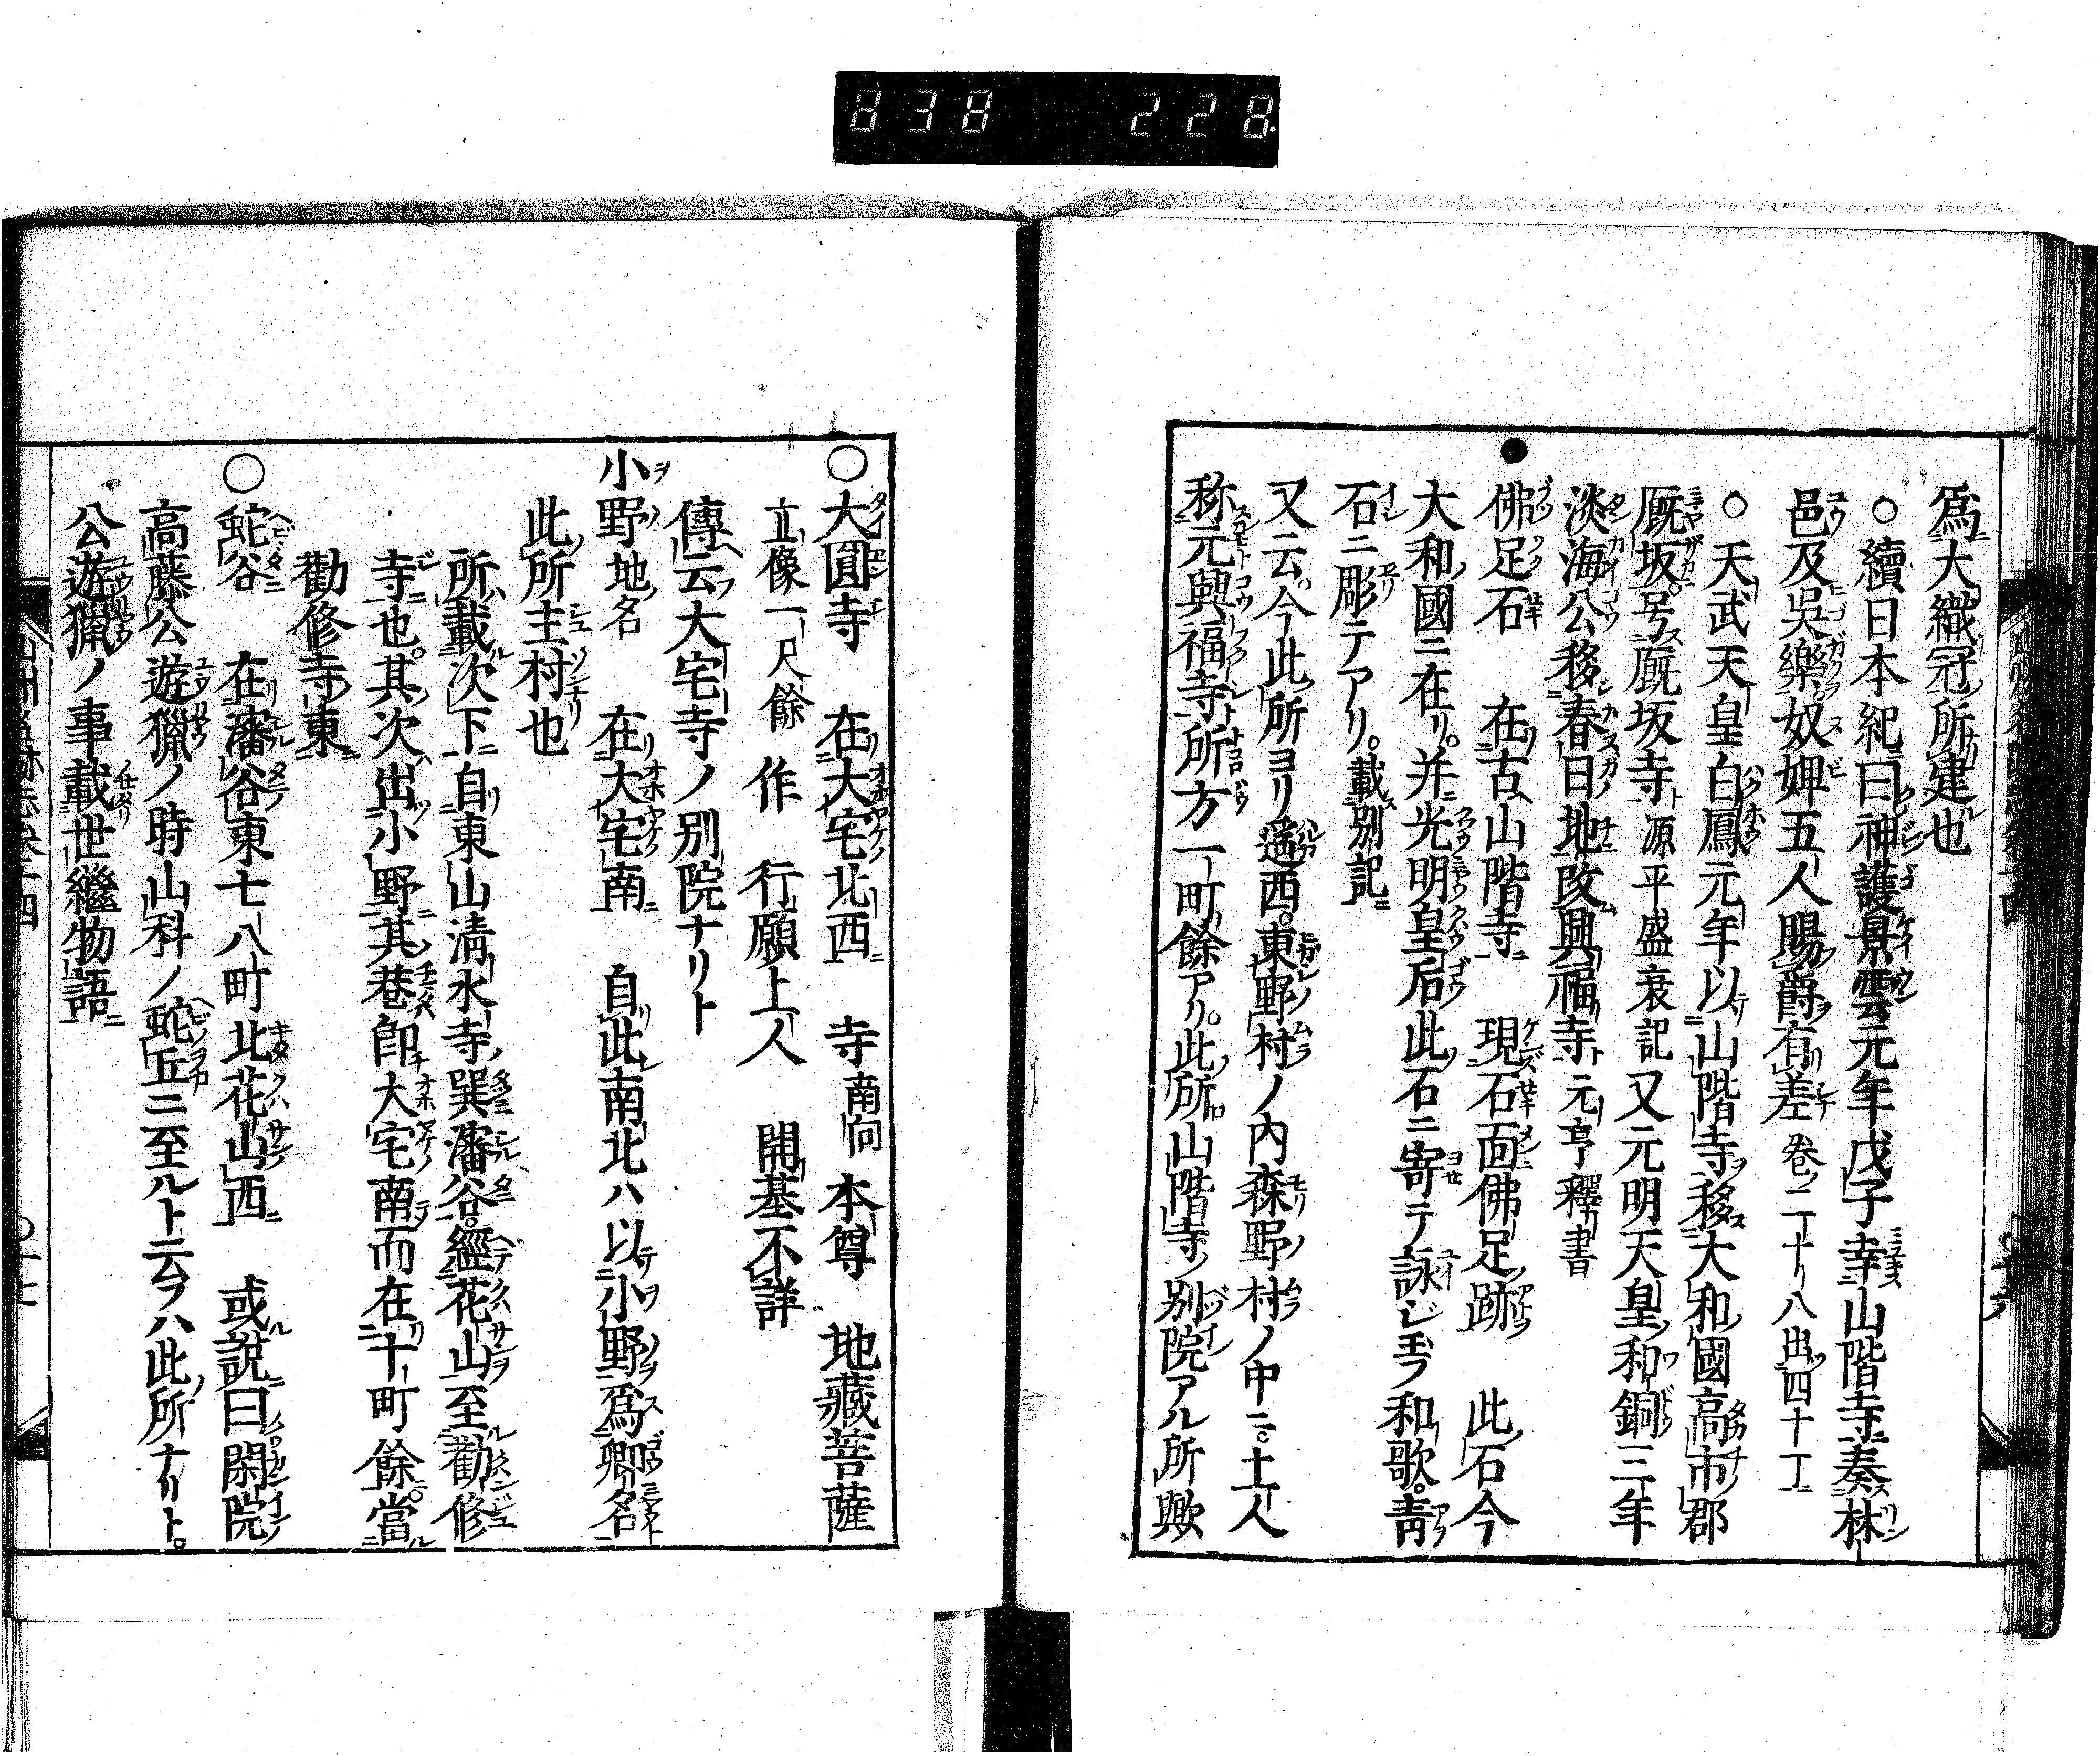 838 228
爲大織冠所建也
○續日本紀曰神護景雲元年戊子幸山階寺奏林
邑及吳樂奴婢五人賜爵有差 卷二十八出四十丁
○天武天皇白鳳元年以山階寺移大和國高市郡
厩坂号厩坂寺 源平盛衰記 又元明天皇和銅三年
淡海公移春日地改興福寺 元亨釋書
●佛足石 在古山階寺 現石面佛足跡 此石今
大和國ニ在リ。并光明皇后此石ニ寄テ詠レ玉フ和歌。靑
石ニ彫テアリ。載別記
又云今此所ヨリ遥西。東野村ノ內森野村ノ中ニ。土人
称元興福寺所方一町餘アリ。此所山階寺別院アル所歟
○大圓寺 在大宅北西 寺南向 本尊 地藏菩薩
立像一尺餘 作 行願上人 開基不詳
傳云大宅寺ノ別院ナリト
小野 地名 在大宅南 自此南北ハ以小野爲郷名
此所主村也
所載次下自東山淸水寺巽瀋谷。經花山至勸修
寺也。其次出小野其巷卽大宅南而在十町餘。當
勸修寺東
○蛇谷 在瀋谷東七八町北花山西 或說曰閑院
高藤公遊獵ノ時山科ノ蛇丘ニ至ルト云フハ此所ナリト。
公遊獵ノ事載世繼物語